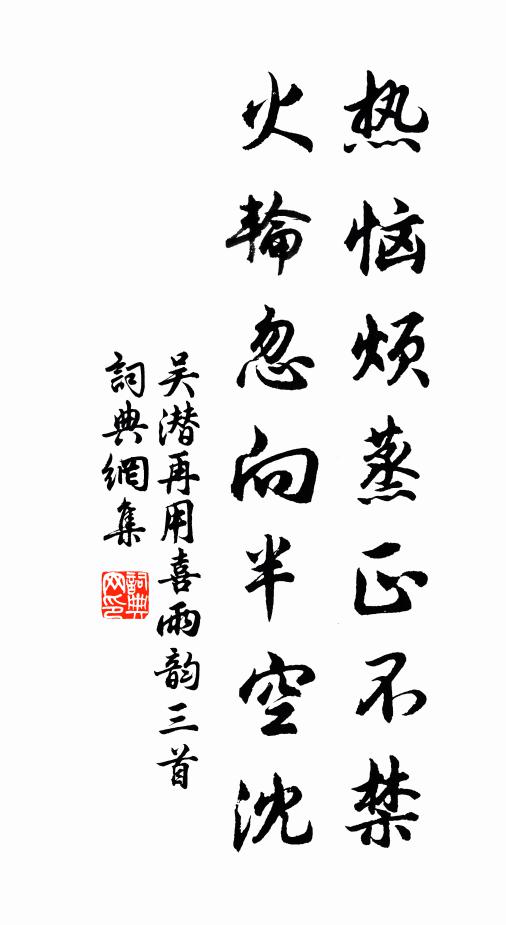 热恼烦蒸正不禁
火輪忽向半空沈
吴潜再用喜雨韵三首
詞典網集
詞典网印